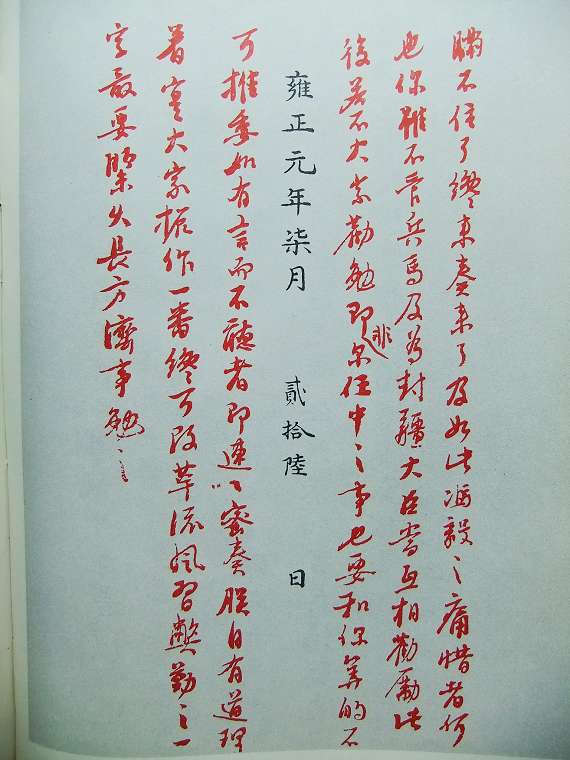 瞞不住了纔来奏来了及如此馮毅之痛惜者何
也你雖不管兵馬及為封疆大臣當互相勸勵此
後若不大家勸勉即非尔任中之事也要和你算的不
雍正元年柒月 貳拾陸 日
可推委如有言而不聽者即速以密奏朕自有道理
着寔大家振作一番纔可改流風習弊勤之一
字最要緊久長方濟事勉之